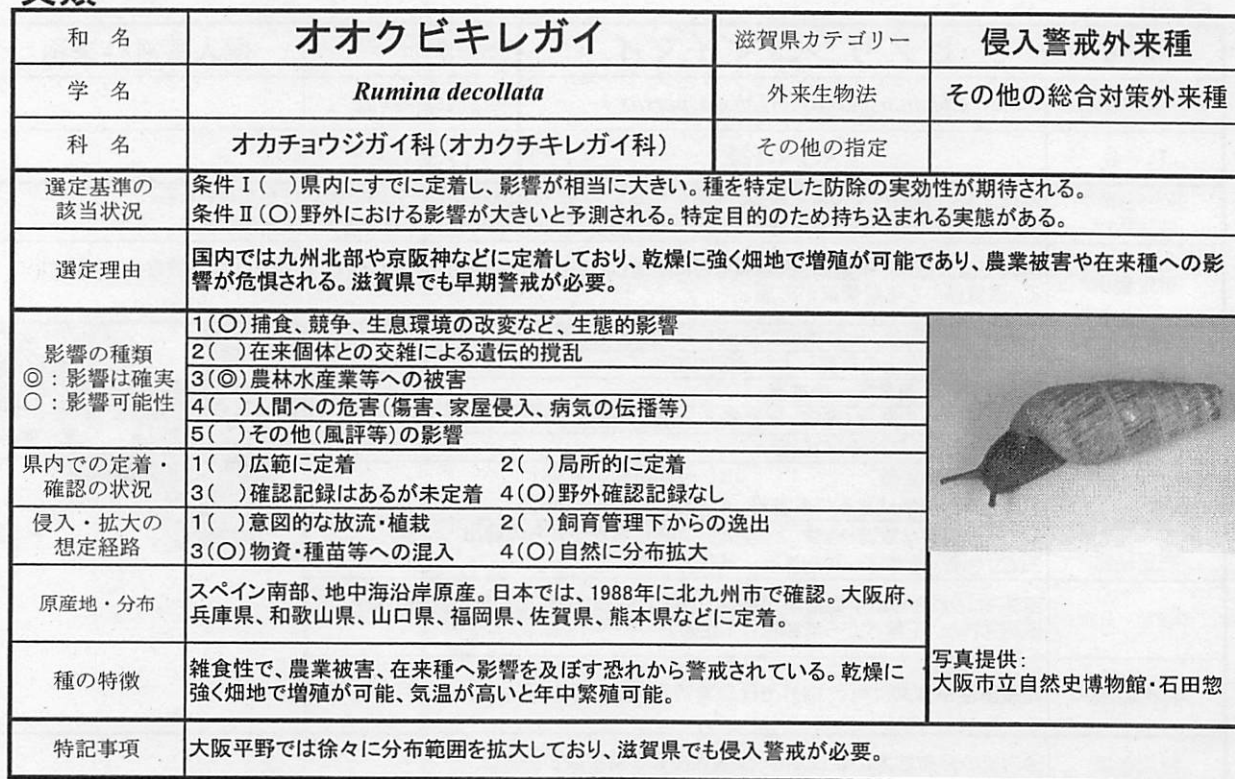 和 名 オオクビキレガイ 滋賀県カテゴリー 侵入警戒外来種
学 名 Rumina decollata 外来生物法 その他の総合対策外来種
科 名 オカチョウジガイ科(オカクチキレガイ科) その他の指定
選定基準の該当状況
条件Ⅰ( )県内にすでに定着し、影響が相当に大きい。種を特定した防除の実効性が期待される。
条件Ⅱ(○)野外における影響が大きいと予測される。特定目的のため持ち込まれる実態がある。
選定理由
国内では九州北部や京阪神などに定着しており、乾燥に強く畑地で増殖が可能であり、農業被害や在来種への影
響が危惧される。滋賀県でも早期警戒が必要。
影響の種類
◎:影響は確実
○:影響可能性
1(○)捕食、競争、生息環境の改変など、生態的影響
2( )在来個体との交雑による遺伝的撹乱
3(◎)農林水産業等への被害
4( )人間への危害(傷害、家屋侵入、病気の伝播等)
5( )その他(風評等)の影響
県内での定着・
確認の状況
1( )広範に定着 2( )局所的に定着
3( )確認記録はあるが未定着 4(○)野外確認記録なし
侵入・拡大の
想定経路
1( )意図的な放流・植栽 2( )飼育管理下からの逸出
3(○)物資・種苗等への混入 4(○)自然に分布拡大
原産地・分布
スペイン南部、地中海沿岸原産。日本では、1988年に北九州市で確認。大阪府、
兵庫県、和歌山県、山口県、福岡県、佐賀県、熊本県などに定着。
種の特徴
雑食性で、農業被害、在来種へ影響を及ぼす恐れから警戒されている。乾燥に
強く畑地で増殖が可能、気温が高いと年中繁殖可能。
写真提供:
大阪市立自然史博物館・石田惣
特記事項
大阪平野では徐々に分布範囲を拡大しており、滋賀県でも侵入警戒が必要。